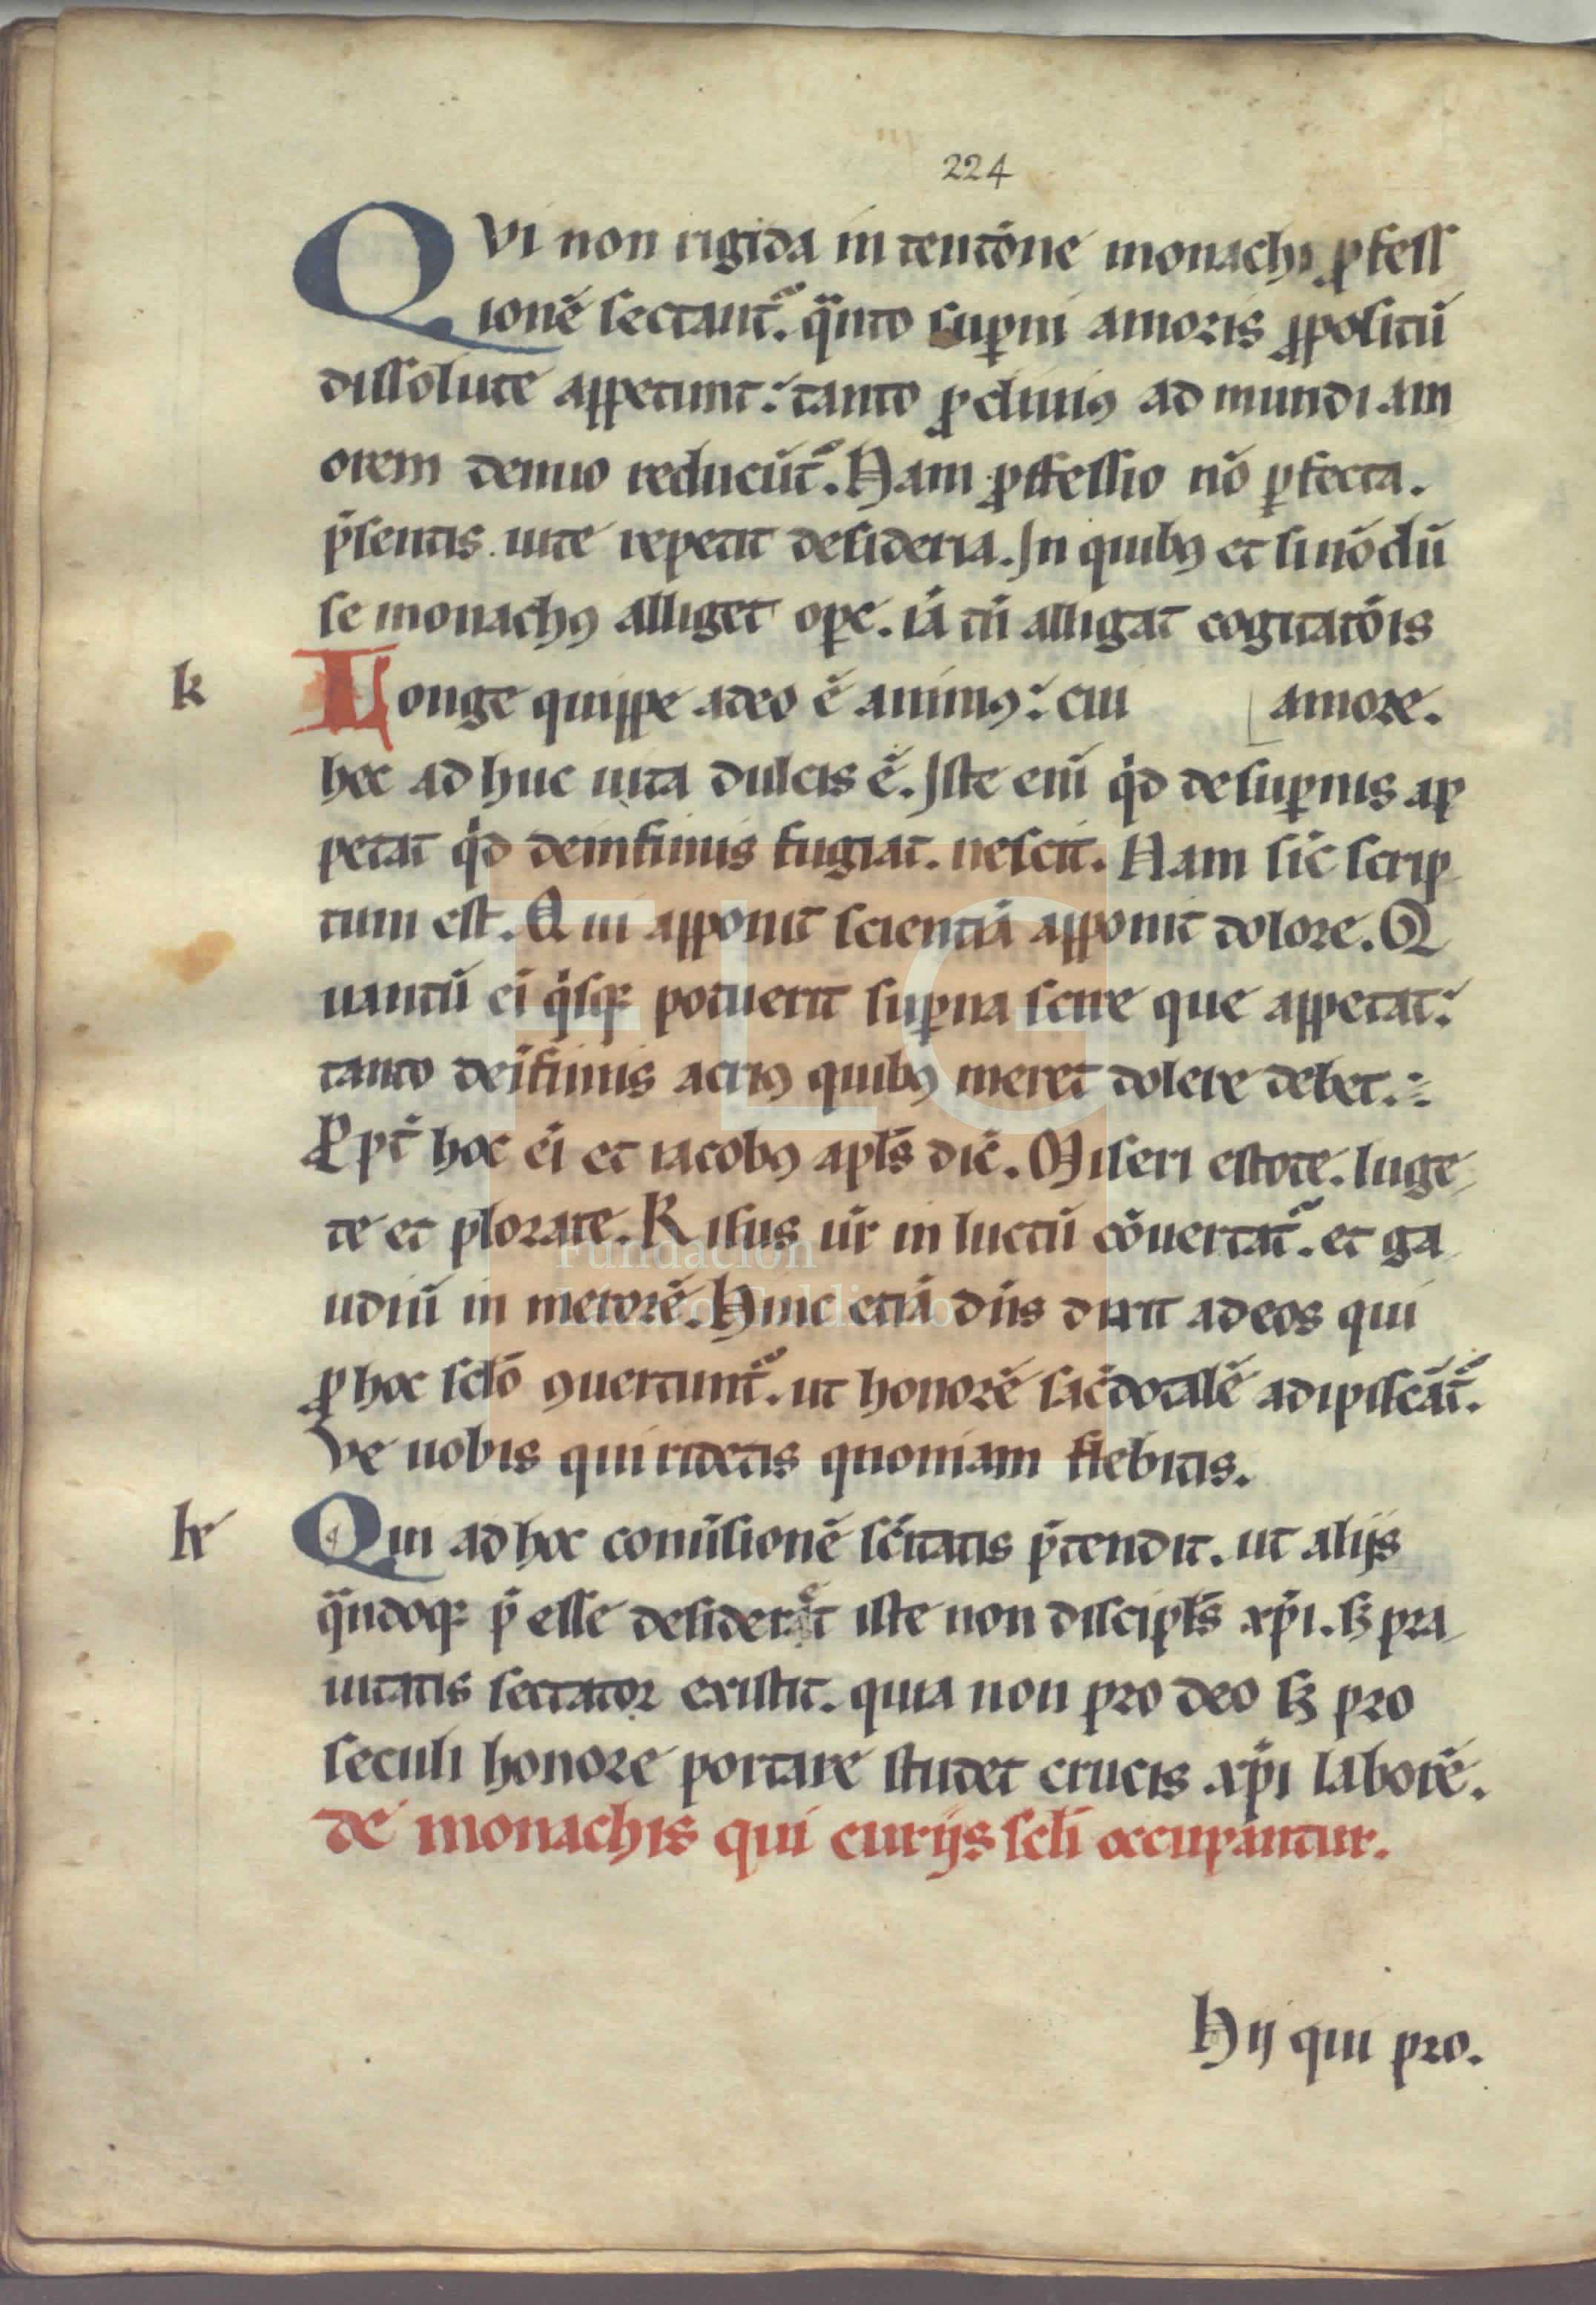 224
Qvi non rigida in tentõne monachi ꝓfess
ionẽ sectant᷑. q̃nto suꝑni amoris ꝓpositũ
dissolute appetunt: tanto ꝓcliuiꝰ ad mundi am
orem denuo reducũt᷑. Nam ꝓffessio nõ ꝑfecta.
p̃sentis uite repetit desideria. In quibꝫ et si nõdũ
se monachꝰ alliget oꝑe. iã tñ alligat cogitatõis
k Longe quippe adeo ẽ animꝰ: cui amore.
hec ad huc uita dulcis ẽ. Iste eni͂ qͥd desuꝑnis ap
petat qͥd deinfimis fugiat. nescit. Nam sic̃ scrip
tum est. Qui apponit scientiã apponit dolore. Q
uantũ ei͂ qͥsqꝫ potuerit suꝑna scire que appetat:
tanto deĩfimis acriꝰ quibꝫ meret᷑ dolere debet.
Ppt̃ hoc ei͂ et iacobꝰ apl̃s dic̃. Miseri estote. luge
te et plorate. Risus ur̃ in luctũ cõuertat᷑. et ga
udiũ in merorẽ. Hinc etiã dñs dixit adeos qui
ꝓ hoc sclo̅ ꝯuertunt᷑. ut honorẽ sac̃dotalẽ adipiscãt᷑.
Ve uobis qui ridetis quoniam flebitis.
k Qui ad hoc conuisionẽ sc̃itatis p̃tendit. ut alijs
q̃ndoqꝫ p̃ esse desideret iste non discipl̃s xp̃i. sꝫ pra
uitatis sectator existit. quia non pro deo sꝫ pro
seculi honore portare studet crucis xp̃i laborẽ.
de monachis qui curijs scl̃i occupantur.
Hij qui pro.
Fundación
Lázaro Galdiano
FLG